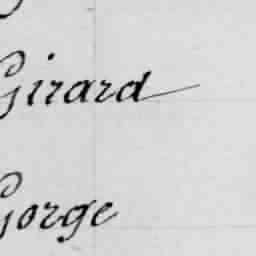 Girard
Gorge